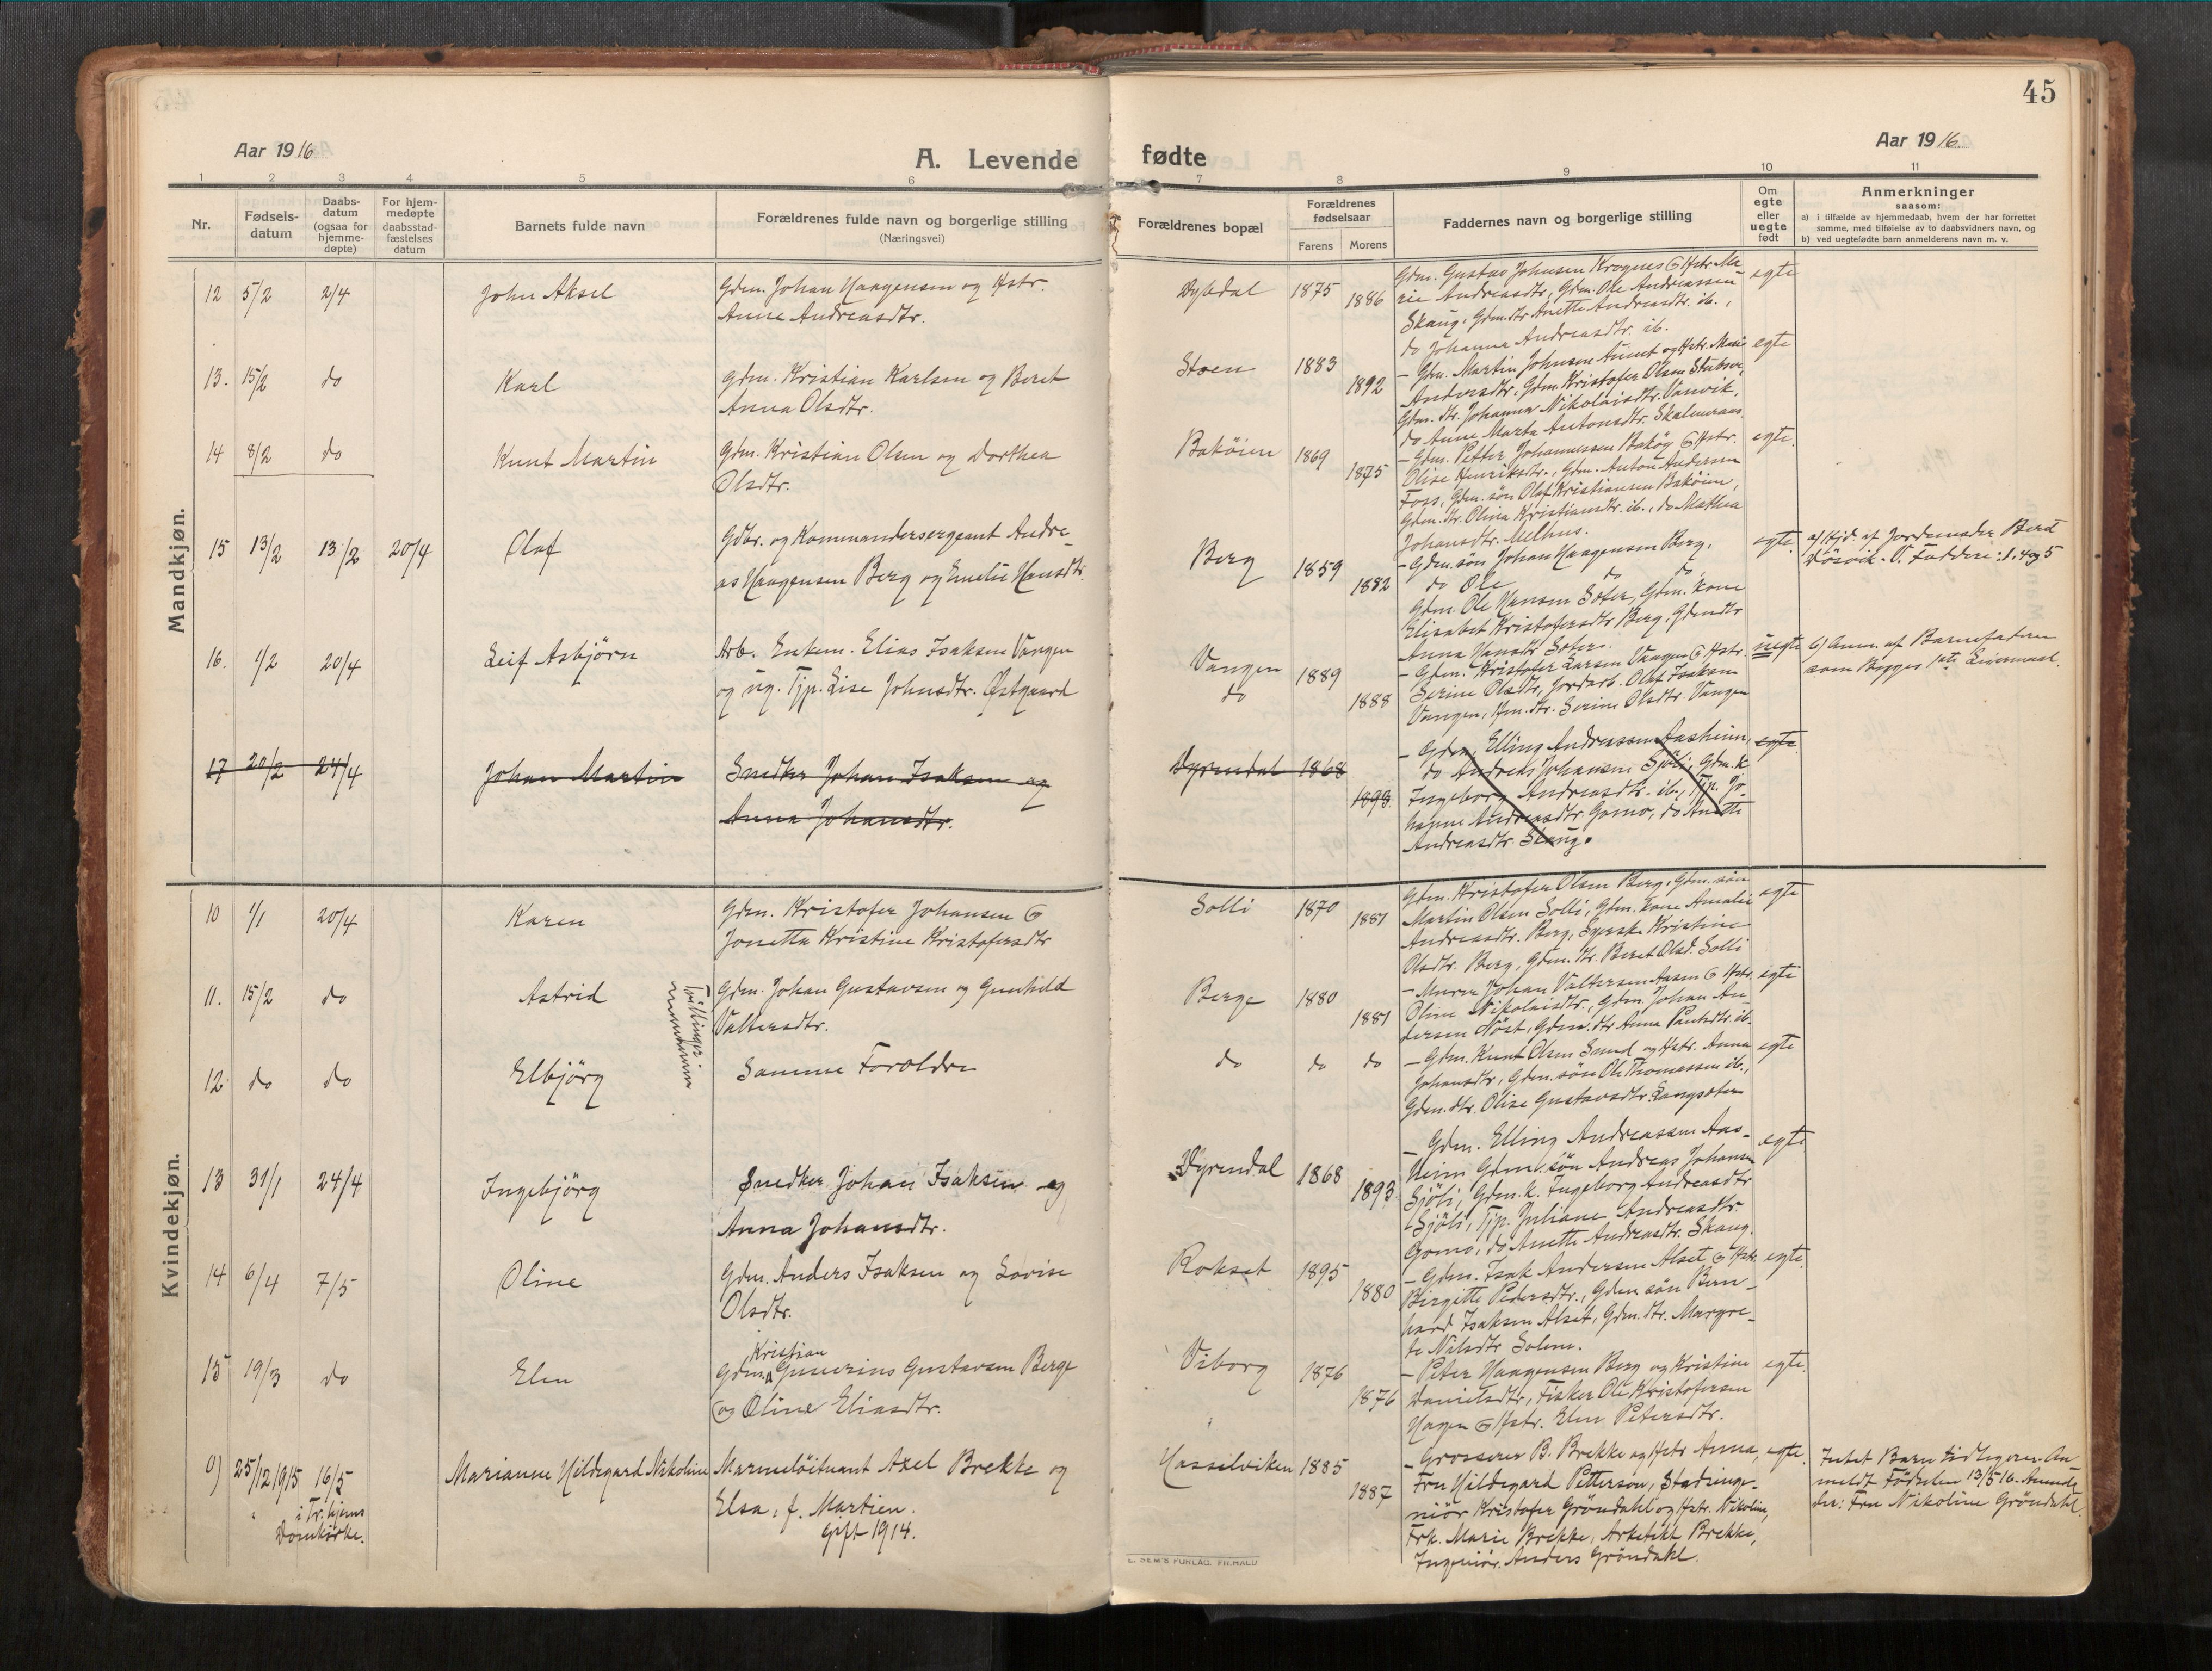 45
Aar 1916
A. Levende
fødte
Aar 1916
1 2 3 4 5 6 7 8 9 10 11
Nr.
Fødsels-
datum
Daabs-
datum
(ogsaa for
hjemme-
døpte)
For hjem-
medøpte
daabsstad-
fæstelses
datum
Barnets fulde navn
Forældrenes fulde navn og borgerlige stilling
(Næringsvei)
Forældrenes bopæl
Forældrenes
fødselsaar
Farens Morens
Faddernes navn og borgerlige stilling
Om
egte
eller
uegte
født
Anmerkninger
saasom:
a) i tilfælde av hjemmedaab, hvem der har forrettet
samme, med tilføielse av to daabsvidners navn, og
b) ved uegtefødte barn anmelderens navn m. v.
Mandkjøn.
12 5/2 2/4 John Aksel
Gdm. Johan Haagensen og Hstr.
Anne Andreasdtr.
Dybdal 1875 1886
Gdm. Gustav Johnsen Krognes & Hstr. Ma-
rie Andreasdtr, Gdm. Ole Andreassen
Skaug, Gdm.dtr Anette Andreasdtr. ib.,
do Johanna Andreasdtr. ib.
egte
13. 15/2 do Karl
Gdm. Kristian Karlsen og Beret
Anna Olsdtr.
Stoen 1883 1892
- Gdm. Martin Johnsen Aunet og Hstr. Marie
Andersdtr., Gdm. Kristofer Olsen
Gdm. dtr. Johanna Nikolaisdtr. Vanvik,
do Anne Marta Antonsdtr.
egte
14 8/2 do Knut Martin
Gdm. Kristian Olsen og Dorthea
Olsdtr.
Bakøien 1869 1875
- Gdm. Petter Johannessen Bakøy & Hstr.
Olise Henriksdtr., Gdm. Anton Andersen
Foss, Gdm. søn Olaf Kristiansen Bakøien,
Gdm. dtr. Olina Kristiansdtr. ib., do Mathea
Johansdtr. Melhus.
egte.
15 13/2 13/2 20/4 Olaf
Gdbr. og Kommandersergeant Andre-
as Haagensen Berg og Emelie Hansdtr.
Berg 1859 1882
- Gdm. søn Johan Haagensen Berg,
do Ole do do
Gdm. Ole Hansen Sæter, Gdm. kone
Elisabet Kristofersdtr Berg, Gdmdtr
Anna Hansdtr Sæter.
egte.
a) Hjd. af Jordemoder Berit
Døsvik. V. Faddere: 1. 4 og 5
16. 1/2 20/4 Leif Asbjørn
Arb. Enkem. Elias Isaksen Vangen
og ug. Tjp. Lise Johnsdtr. Østgaard
Vangen 1889
do 1888
- Gdm. Kristofer Larsen Vangen & Hstr.
Serine Olsdtr, Jordarb. Olaf Isaksen
Vangen, Hm. dtr. Serine Olsdtr. Vangen
uegte
b) Anm. af Barnefaderen
som Begges 1ste Leiermaal.
17 20/2 24/4 Johan Martin
Snedker Johan Isaksen og
Anna Johansdtr.
Dyrendal 1868 1893.
- Gdm. Elling Andreassen Aasheim,
do Andreas Johansen Sjøli, Gdm. k.
Ingeborg Andreasdtr. ib., Tjp. Jo-
hanne Andreasdtr. Gomo, do Anette
Andreasdtr. Skaug.
egte.
Kvindekjøn.
10 1/1 20/4 Karen
Gdm. Kristofer Johansen &
Jonetta Kristine Kristofersdtr
Solli 1870 1881
Gdm. Kristofer Olsen Berg, Gdm. søn
Martin Olsen Solli, Gdm. kone Amalie
Andreasdtr. Berg, Syerske Kristine
Olsdtr. Berg, Gdm. dtr. Beret Olsd. Solli
egte
11. 15/2 do Astrid
Tvillinger
Gdm. Johan Gustavsen og Gunhild
Valtersdtr.
Berge 1880 1881
- Murer Johan Valtersen Aasen & Hstr.
Oline Nikolaisdtr., Gdm. Johan An-
dersen Nøst, Gdm. dtr Anna Paulsdtr. ib.
egte
12 do do Elbjørg
Samme Forældre
do do do
- Gdm. Knut Olsen Sund og Hstr. Anna
Johansdtr, Gdm. søn Ole Thomassen ib.,
Gdm. dtr. Olise Gustavsdtr. Langsæter
egte
13 31/1 24/4 Ingebjørg
Snedker Johan Isaksen og
Anna Johansdtr.
Dyrendal 1868 1893
- Gdm. Elling Andreassen Aas-
heim Gdm. søn Andreas Johansen
Sjøli, Gdm. k. Ingeborg Andreasdtr
Sjøli, Tjp. Juliane Andreasdtr.
Gomo, do Anette Andreasdtr. Skaug.
egte
14 6/4 7/5 Oline
Gdm. Anders Isaksen og Lovise
Olsdtr.
Rokset 1895 1880
- Gdm. Isak Andersen Alset & Hstr.
Birgitte Pedersdtr., Gdm. søn Bern-
hard Isaksen Alset, Gdm. dtr. Margre-
te Nilsdtr Solem.
egte.
15 19/3 do Elen
Kristian
Gdm. Gunerius Gustavsen Berge
og Oline Eliasdtr.
Viborg 1876 1876
- Peter Haagensen Berg og Kristine
Danielsdtr, Fisker Ole Kristofersen
Hagen & Hstr. Elen Petersdtr.
egte.
0) 25/12 1915 16/5
i Tr.hjems
Domkirke.
Marianne Hildegard Nikoline
Marineløitnant Axel Brekke og
Elsa, f. Martien.
gift 1914.
Hasselviken 1885 1887
- Grosserer B. Brekke og Hstr Anna,
Fru Hildegard Petterson, Stadsinge-
niør Kristofer Grøndahl og Hstr. Nikoline,
Frk. Marie Brekke, Arkitekt Brekke,
Ingeniør Anders Grøndahl.
egte.
Intet Barn tidligere. An-
meldt Fødselen 13/5 16. Anmel-
der: Fru Nikoline Grøndahl.
E. SEM'S FORLAG, FR.HALD